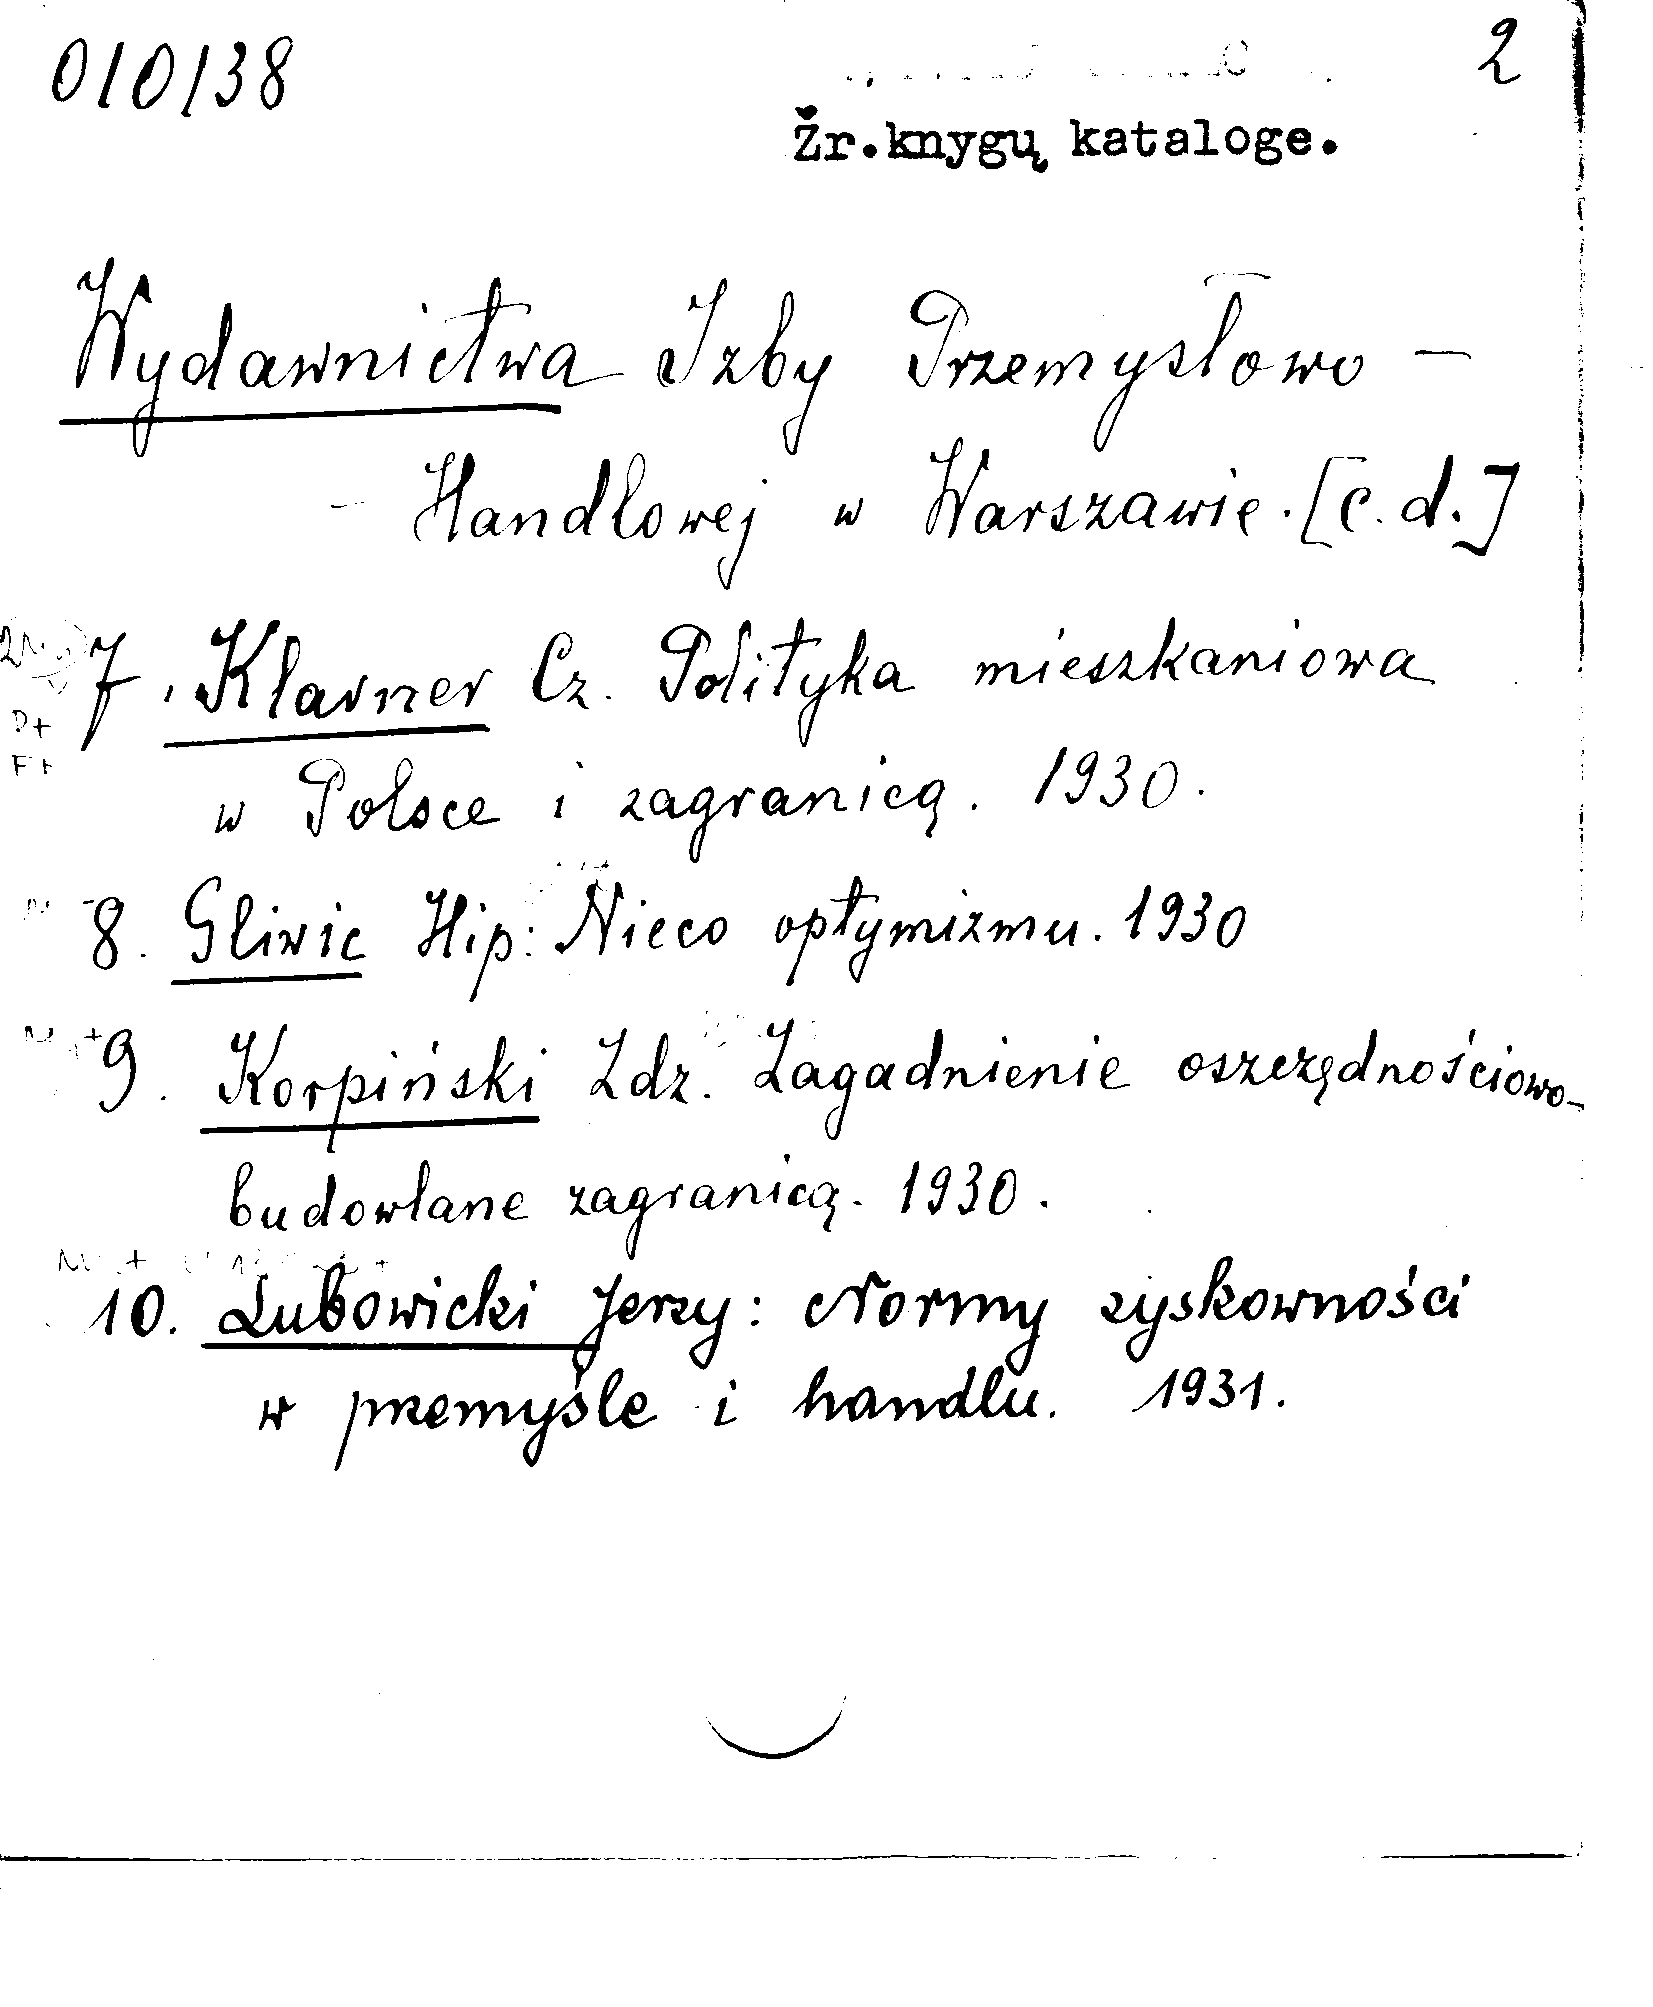 010138
2
Žr.knygų kataloge.
Wydawnictwa Izby Przemysłowo -
- Handlowej w Warszawie. [c.d.]
7. Klarner Cz. Polityka mieszkaniowa
w Polsce i zagranicą. 1930.
8. Gliwic Hip: Nieco optymizmu. 1930
9. Korpiński Zdz. Zagadnienie oszczędnościowo-
budowlane zagranicą. 1930.
10. Lubowicki Jerzy: Normy zyskowności
w przemyśle i handlu. 1931.